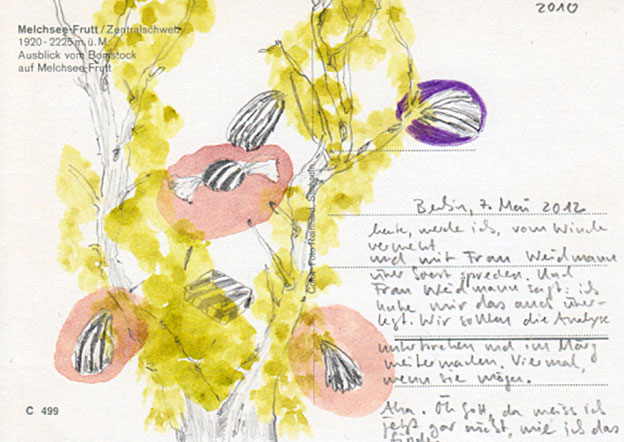 2010
Melchsee-Frutt / Zentralschweiz
1920-2225 m ü. M.
Ausblick vom Bonistock
auf Melchsee-Frutt
Berlin, 7. Mai 2012
heute, werde ich, vom Winde
verweht
und mit Frau Weidmann
über Sport sprechen. Und
Frau Weidmann sagt: ich
habe mir das auch über-
legt. Wir sollten die Analyse
unterbrechen und im März
weitermachen. Viermal,
wenn sie mögen.
Aha. Oh Gott, da weiss ich
jetzt gar nicht, wie ich das
C 499